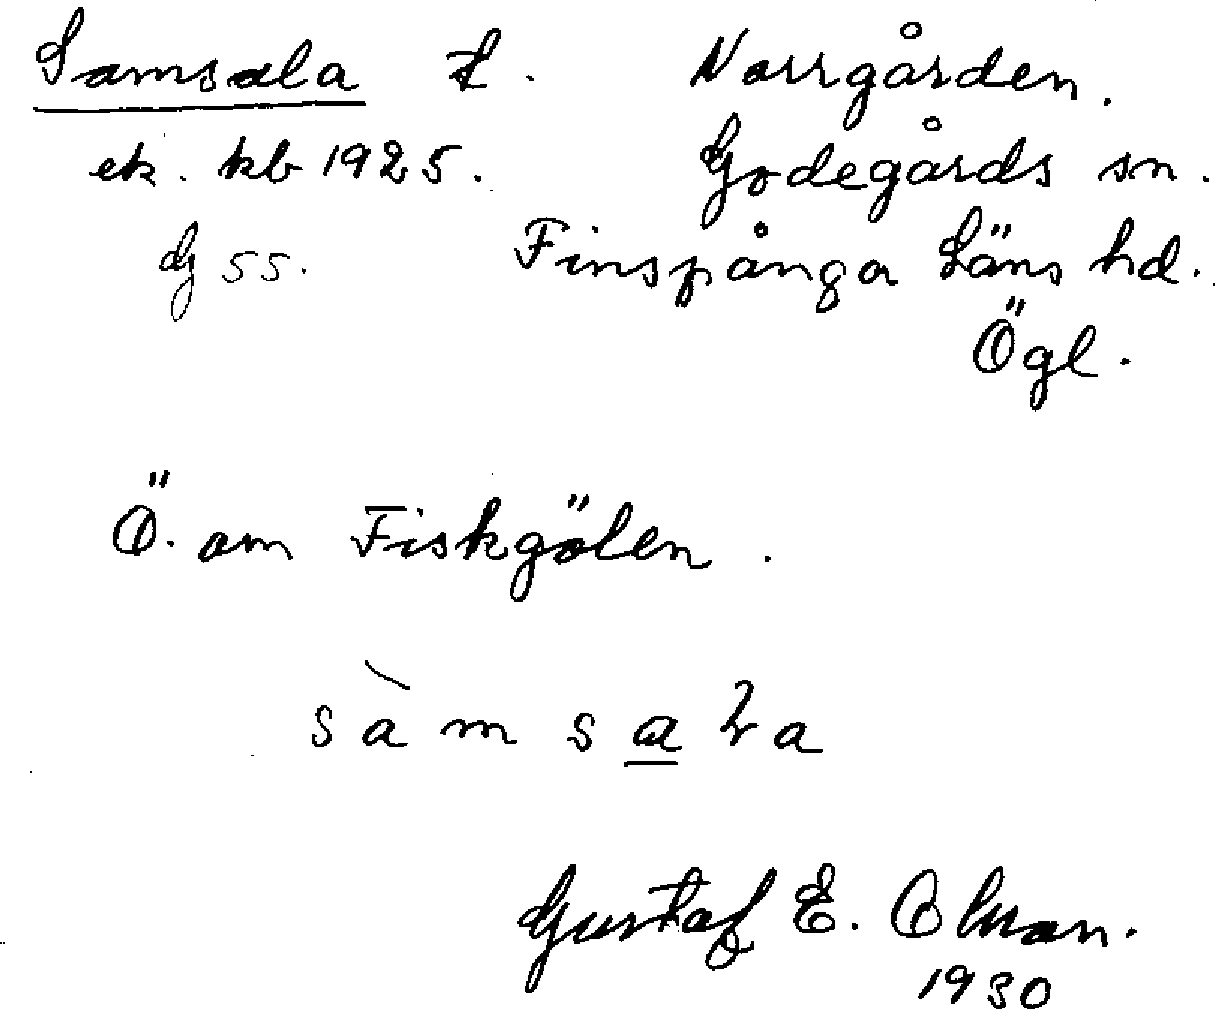 Samsala t. Norrgården.
ek. kb 1925. Godegårds sn.
dg 55. Finspånga Läns hd.
Ögl.
Ö. om Fiskgölen.
sàmsala
Gustaf E. Olsson.
1930